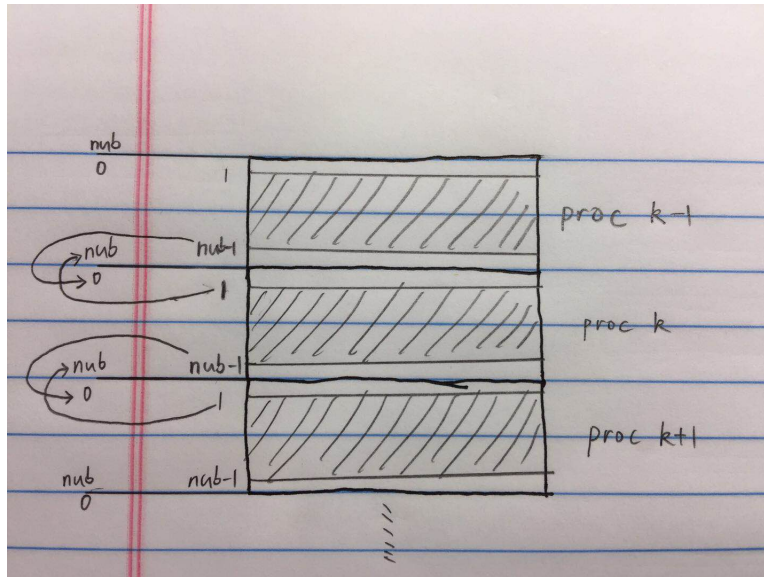 nub
0
1
proc k-1
nub-1
nub
0
1
proc k
nub-1
nub
0
1
proc k+1
nub
nub-1
0